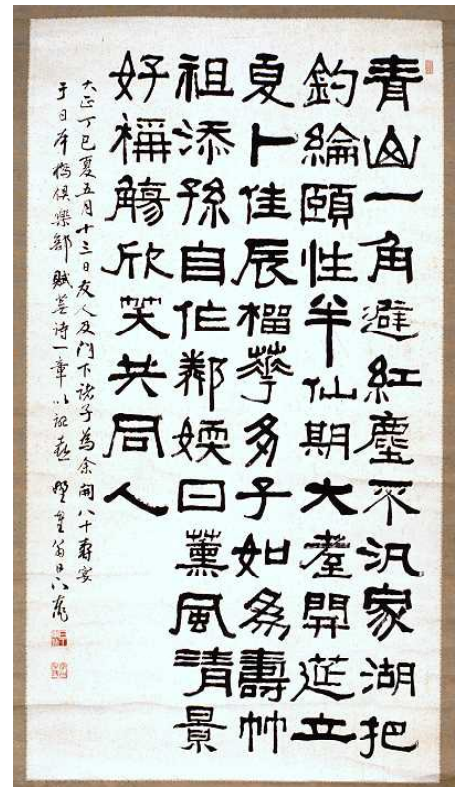 青山一角避紅塵不汎家湖把
釣綸頤性半仙期大耋開莚立
夏卜佳辰榴華多子如為壽竹
祖添孫自作鄰媆曰薫風清景
好稱觴欣笑共同人
大正丁巳夏五月十三日友人及門下諸子為余開八十壽宴
于日本橋倶樂部賦蕪詩一章以記喜